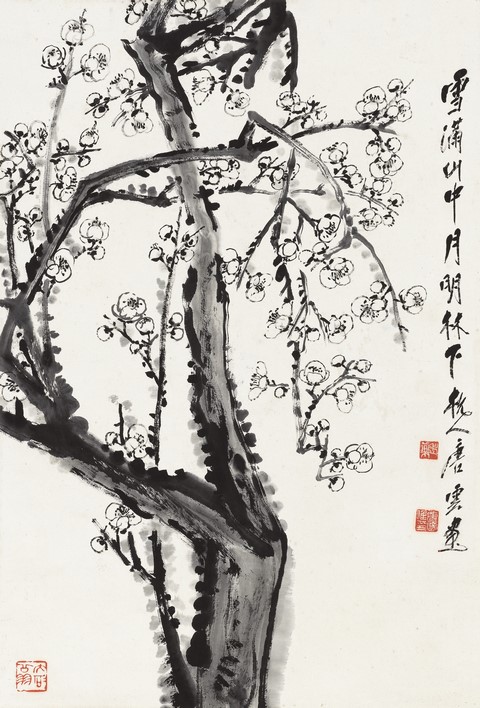 雪滿山中月明林下杭人唐雲畫